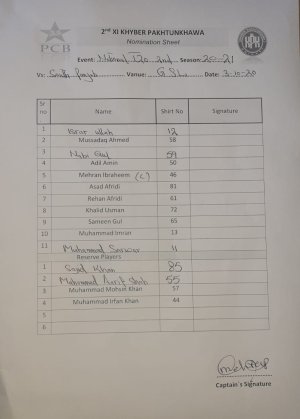 PCB
2nd XI KHYBER PAKHTUNKHAWA
Nomination Sheet
Event: National T20 2nd Season: 2020-21
Vs: South Punjab Vanue: G.S.L Date: 3-10-20
Sr no Name Shirt No Signature
1 Israr ullah 12
2 Mussadaq Ahmed 58
3 Nabi Gul 59
4 Adil Amin 50
5 Mehran Ibraheem (C) 46
6 Asad Afridi 81
7 Rehan Afridi 61
8 Khalid Usman 72
9 Sameen Gul 65
10 Muhammad Imran 13
11 Muhammad Sarwar 11
Reserve Players
1 Sajid Khan 85
2 Muhammad Arif Shah 55
3 Muhammad Mohsin Khan 57
4 Muhammad Irfan Khan 44
5
6
Captain's Signature